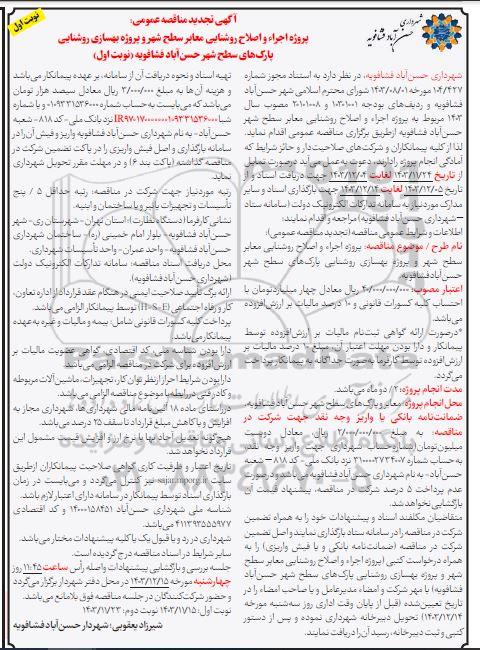 نوبت اول
شهرداری
حسن آباد فشافویه
آگهی تجدید مناقصه عمومی:
پروژه اجراء و اصلاح روشنایی معابر سطح شهر و پروژه بهسازی روشنایی
پارک‌های سطح شهر حسن‌آباد فشافویه (نوبت اول)
شهرداری حسن‌آباد فشافویه، در نظر دارد به استناد مجوز شماره
۱۰۴/۴۲۷ مورخه ۱۴۰۳/۰۸/۰۱ شورای محترم اسلامی شهر حسن‌آباد
فشافویه و ردیف‌های بودجه ۱۰۳۰۱۰۰۱ و ۳۰۱۰۱۰۰۸ مصوب سال
۱۴۰۳ مربوط به پروژه اجراء و اصلاح روشنایی معابر سطح شهر
حسن‌آباد فشافویه از طریق برگزاری مناقصه عمومی اقدام نماید.
لذا از کلیه پیمانکاران و شرکت‌های صلاحیت‌دار و حائز شرایط که
آمادگی انجام پروژه را دارند، دعوت به عمل می‌آید در صورت تمایل
از تاریخ ۱۴۰۳/۱۱/۲۴ لغایت ۱۴۰۳/۱۲/۰۴ جهت دریافت اسناد و از
تاریخ ۱۴۰۳/۱۲/۰۵ لغایت ۱۴۰۳/۱۲/۱۴ جهت بارگذاری اسناد و سایر
مدارک مورد نیاز به سامانه تدارکات الکترونیک دولت (سامانه ستاد
– شهرداری حسن‌آباد فشافویه) مراجعه و اقدام نمایند:
اطلاعات و شرایط عمومی مناقصه (تجدید مناقصه عمومی):
نام طرح / موضوع مناقصه: پروژه اجراء و اصلاح روشنایی معابر
سطح شهر و پروژه بهسازی روشنایی پارک‌های سطح شهر
حسن‌آباد فشافویه.
اعتبار مصوب: ۴۰/۰۰۰/۰۰۰/۰۰۰ ریال معادل چهار میلیارد تومان با
احتساب کلیه کسورات قانونی و ۱۰ درصد مالیات بر ارزش افزوده
می‌باشد.
*در صورت ارائه گواهی ثبت‌نام مالیات بر ارزش افزوده توسط
پیمانکار و دارا بودن مهلت اعتبار آن، مبلغ ۱۰ درصد مالیات بر
ارزش افزوده توسط کارفرما به صورت جداگانه به پیمانکار پرداخت
می‌گردد.
مدت انجام پروژه: ۲/ دو ماه می‌باشد.
محل انجام پروژه: معابر و پارک‌های سطح شهر حسن‌آباد فشافویه.
ضمانت‌نامه بانکی یا واریز وجه نقد جهت شرکت در
مناقصه: به مبلغ ۲/۰۰۰/۰۰۰/۰۰۰ ریال معادل دویست
میلیون تومان (شبا و حساب شهرداری جهت واریز وجه نقد،
به حساب شماره ۳۱۰۰۰۰۲۷۳۴۰۰۷ نزد بانک ملی - کد ۸۱۸ - شعبه
حسن‌آباد - به نام شهرداری حسن‌آباد فشافویه می‌باشد و در صورت
عدم پرداخت ۵ درصد شرکت در مناقصه، پیشنهاد قیمت آن
بازگشایی نخواهد شد.
متقاضیان مکلفند اسناد و پیشنهادات خود را به همراه تضمین
شرکت در مناقصه را در سامانه ستاد بارگذاری نمایند و اصل تضمین
شرکت در مناقصه (ضمانت‌نامه بانکی و یا فیش واریزی) را به
همراه درخواست کتبی (پروژه اجراء و اصلاح روشنایی معابر سطح
شهر و پروژه بهسازی روشنایی پارک‌های سطح شهر حسن‌آباد
فشافویه) با مهر شرکت و امضاء مدیرعامل و یا صاحب امضاء را در
تاریخ تعیین‌شده (قبل از پایان وقت اداری روز سه‌شنبه مورخه
۱۴۰۳/۱۲/۱۴) تحویل دبیرخانه شهرداری نموده و پس از دستور
کتبی و ثبت دبیرخانه، رسید آن را دریافت نمایند.
تهیه اسناد و نحوه دریافت آن از سامانه، بر عهده پیمانکار می‌باشد
و هزینه آن‌ها به مبلغ ۳/۰۰۰/۰۰۰ ریال معادل سیصد هزار تومان
می‌باشد که می‌بایست به حساب شماره ۰۱۰۹۳۳۱۵۳۶۰۰۰ و یا شماره
نزد بانک ملی - کد ۸۱۸ - شعبه
حسن‌آباد - به نام شهرداری حسن‌آباد فشافویه واریز و فیش آن را در
سامانه بارگذاری و اصل فیش واریزی را در پاکت تضمین شرکت در
مناقصه گذاشته (پاکت بند ۶) و در مهلت مقرر تحویل شهرداری
نماید.
رتبه مورد نیاز جهت شرکت در مناقصه: رتبه حداقل ۵ / پنج
تأسیسات و تجهیزات یا نیرو یا ساختمان و ابنیه.
نشانی کارفرما (دستگاه نظارت): استان تهران - شهرستان ری - شهر
حسن‌آباد فشافویه - بلوار امام خمینی (ره) - ساختمان شهرداری
حسن‌آباد فشافویه - واحد عمران - واحد تأسیسات شهرداری.
محل دریافت اسناد مناقصه: سامانه تدارکات الکترونیک دولت
(شهرداری حسن‌آباد فشافویه).
ارائه برگ تأیید صلاحیت ایمنی در هنگام عقد قرارداد از اداره تعاون،
کار و رفاه اجتماعی (H-S-E) توسط پیمانکار الزامی می‌باشد.
پرداخت کلیه کسورات قانونی شامل: بیمه و مالیات و غیره به عهده
پیمانکار می‌باشد.
دارا بودن شناسه ملی، کد اقتصادی، گواهی عضویت مالیات بر
ارزش افزوده برای شرکت در مناقصه الزامی می‌باشد.
دارا بودن شرایط احراز از نظر توان کار، تجهیزات، ماشین‌آلات مربوطه
و کادر فنی در رابطه با موضوع مناقصه الزامی می‌باشد.
در راستای ماده ۱۸ آئین‌نامه مالی شهرداری‌ها، شهرداری مجاز به
افزایش و یا کاهش مبلغ قرارداد تا سقف ۲۵ درصد می‌باشد.
هیچ‌گونه تعدیل آحاد بها یا نرخ ارز و افزایش قیمت مشمول این
قرارداد نخواهد شد.
تاریخ اعتبار و ظرفیت کاری گواهی صلاحیت پیمانکاران از طریق
سایت sajar.mporg.ir نیز کنترل می‌گردد و می‌بایست در زمان
بارگذاری اسناد توسط پیمانکار در سامانه دارای اعتبار لازم باشد.
شناسه ملی شهرداری حسن‌آباد ۱۴۰۰۰۱۵۸۴۵۱ و کد اقتصادی
۴۱۱۳۹۳۵۵۵۹۷۷ می‌باشد.
شهرداری در رد و یا قبول یک یا کلیه پیشنهادات مختار می‌باشد.
سایر شرایط در اسناد مناقصه درج گردیده است.
جلسه بررسی و بازگشایی پیشنهادات واصله رأس ساعت ۱۱:۴۵ روز
چهارشنبه مورخه ۱۴۰۳/۱۲/۱۵ در محل دفتر شهردار برگزار می‌گردد
و حضور شرکت‌کنندگان در جلسه مناقصه فوق بلامانع می‌باشد.
نوبت اول: ۱۴۰۳/۱۱/۱۵ نوبت دوم: ۱۴۰۳/۱۱/۲۳
شیرزاد یعقوبی؛ شهردار حسن‌آباد فشافویه